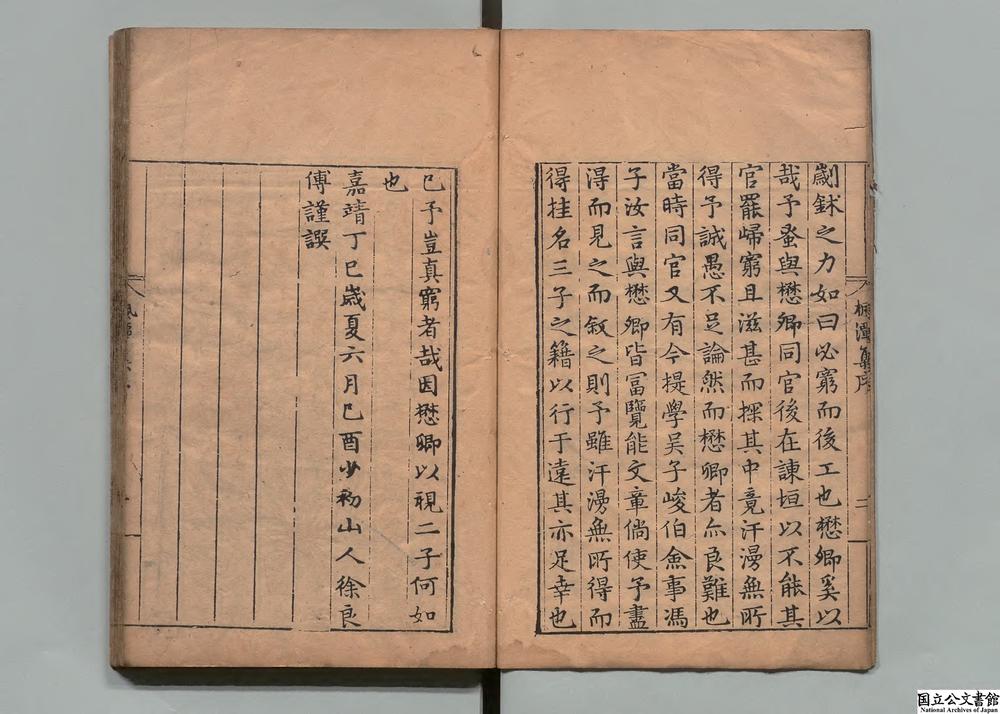 楓潭集序
二
劌鉥之力如曰必窮而後工也懋卿奚以
哉予蚤與懋卿同官後在諫垣以不能其
官罷歸窮且滋甚而探其中竟汗漫無所
得予誠愚不足論然而懋卿者亦良難也
當時同官又有今提學吳子峻伯僉事馮
子汝言與懋卿皆冨覽能文章倘使予盡
淂而見之而敘之則予雖汗漫無所得而
得挂名三子之籍以行于遠其亦足幸也
已予豈真窮者哉因懋卿以視二子何如
也
嘉靖丁巳歲夏六月己酉少初山人徐良
傅謹譔
国立公文書館
National Archives of Japan